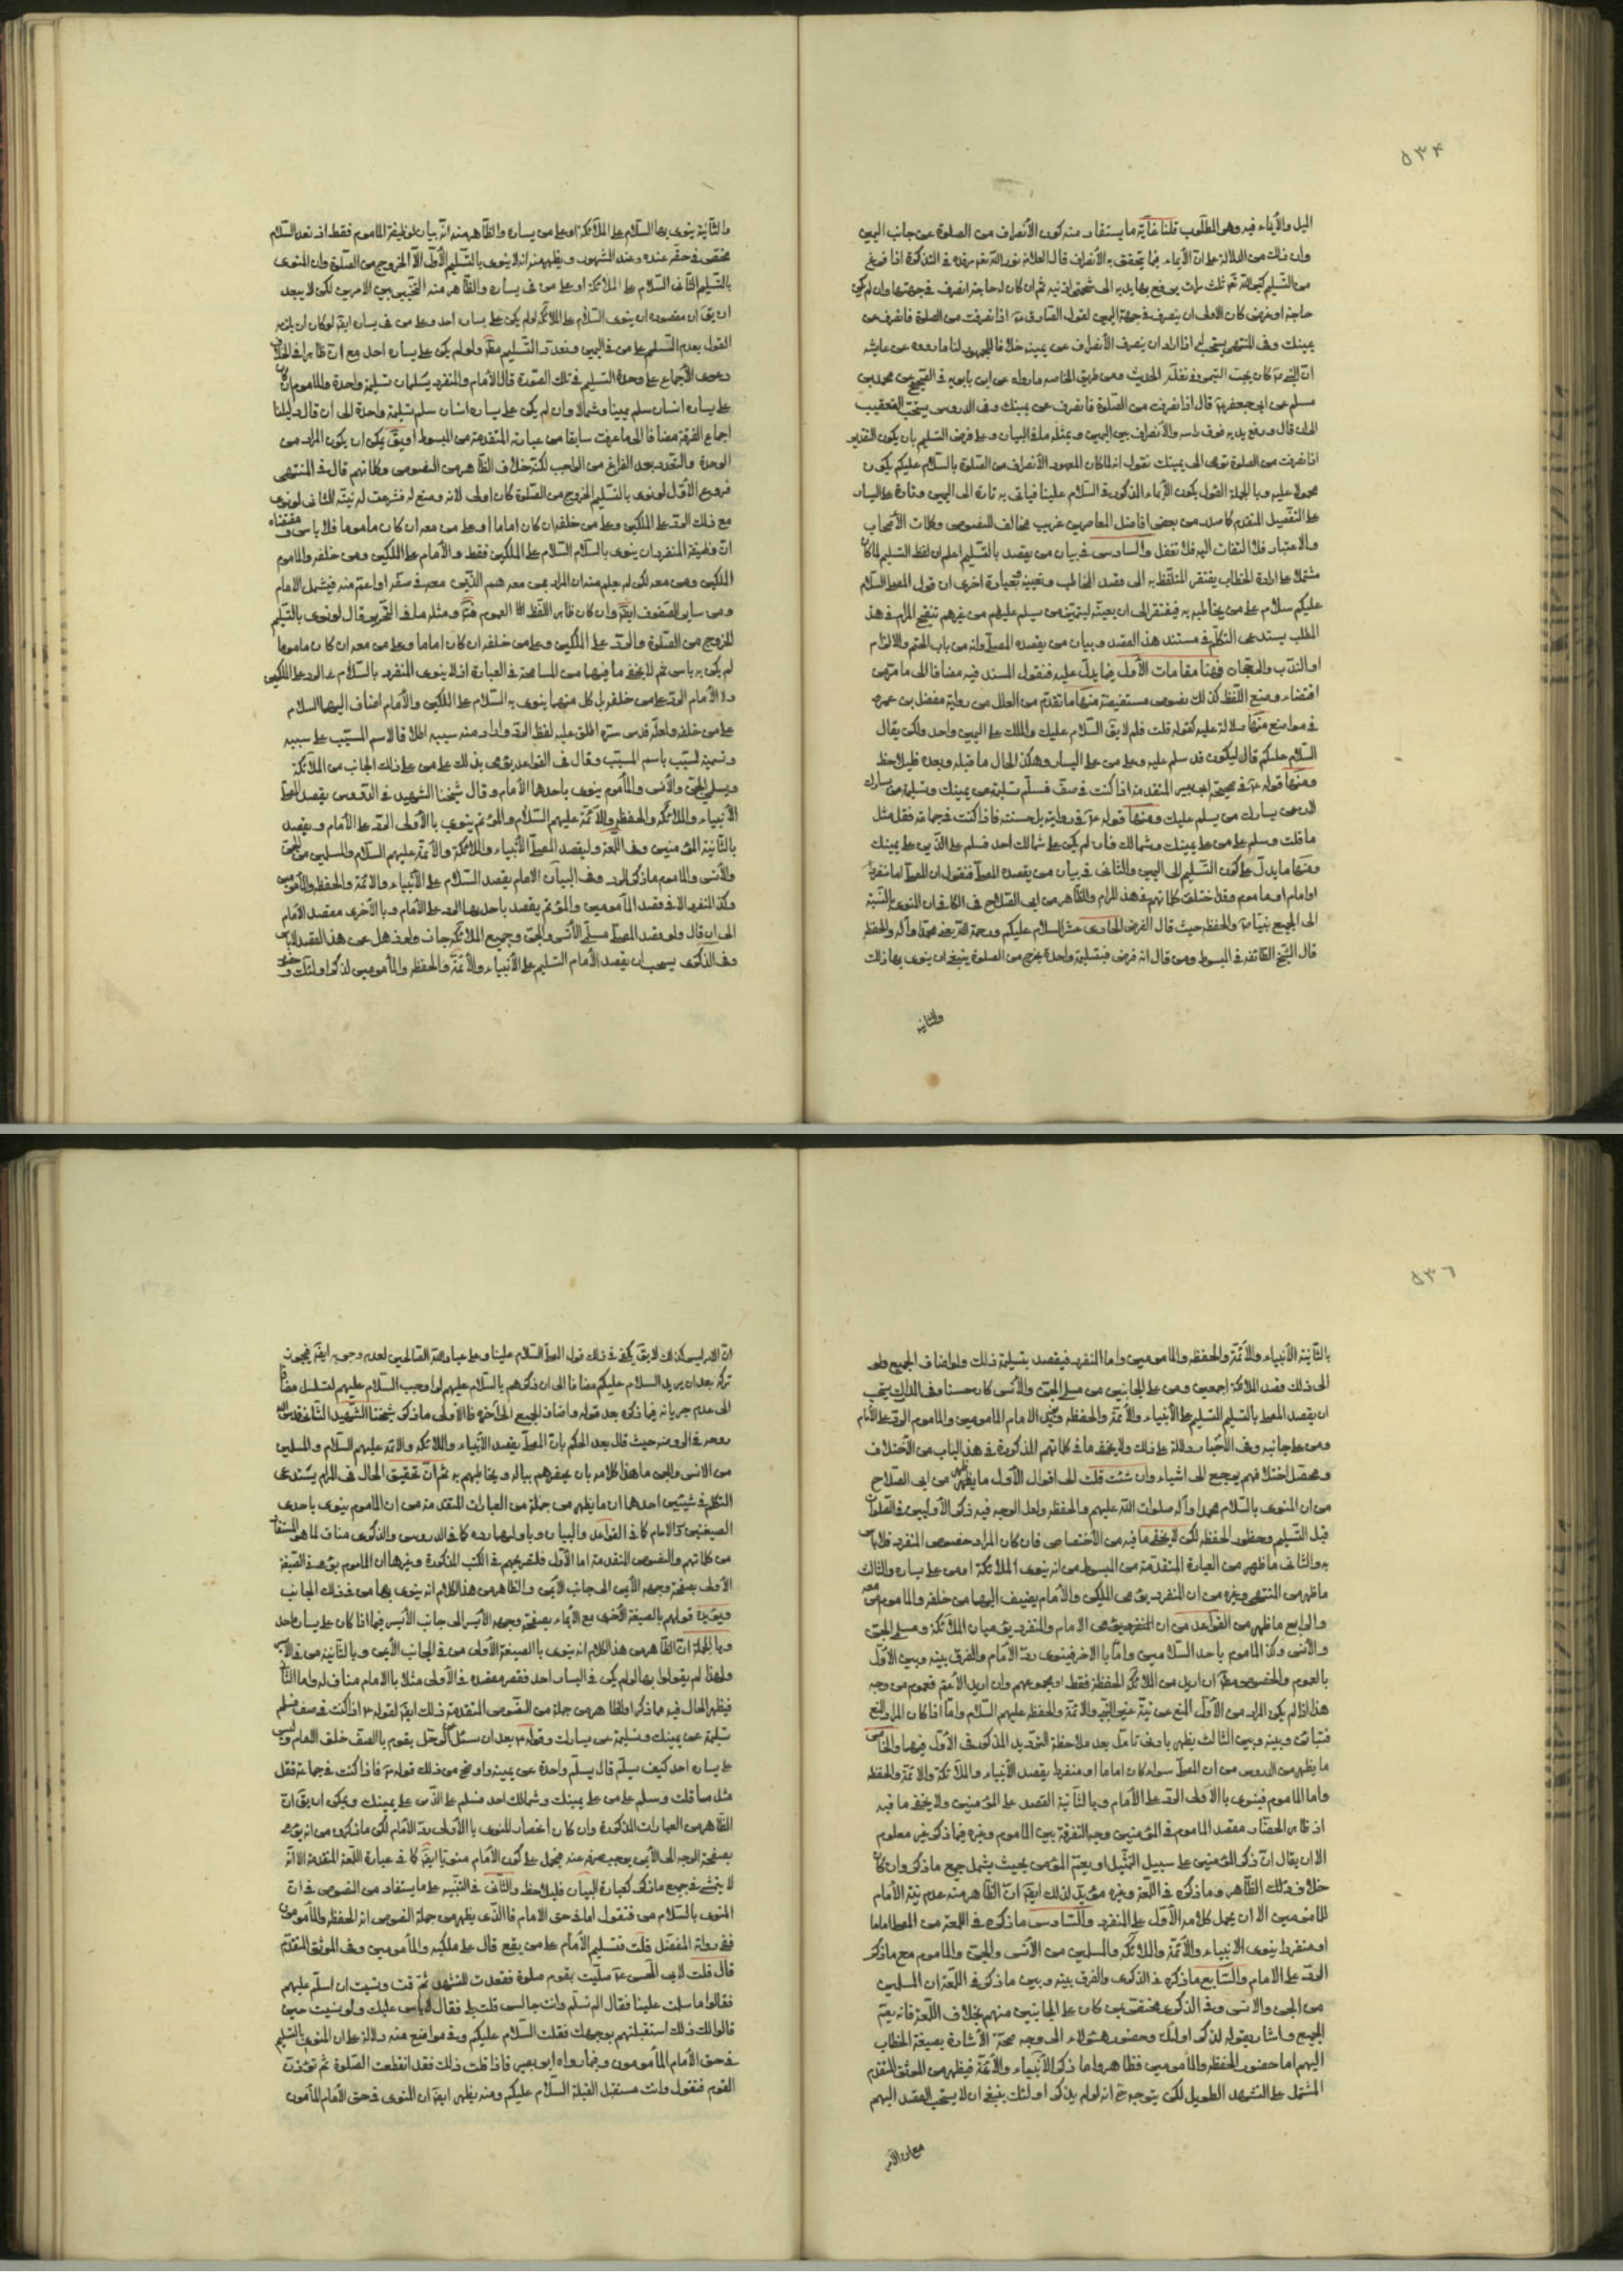 ٥٣٤
اليل والأيماء فيه وهى المطلوب قلنا غاية ما يستفاد منه كون الأنصراف من الصلوة عن جانب اليمين
من التسليم كبر الله تع ثلث مرات يرفع بها يديه الى شحمتى اذنيه ثم ان كان له حاجة انصرف فى جهتها وان لم يكن
حاجة او غرض كان الاولى ان ينصرف فى جهة اليمين لقول الصادق ع اذا انصرفت من الصلوة فانصرف عن
يمينك وفى المنتهى يستحب له اذا اراد ان ينصرف الأنصراف عن يمينه خلافا للجمهور لنا ما رووه عن عايشه
مسلم عن ابى جعفر ع قال اذا انصرفت من الصلوة فانصرف عن يمينك وفى الدروس يستحب التعقيب
اذا انصرفت من الصلوة
على التفصيل المتقدم كما صدر من بعض افاضل المعاصرين غريب مخالف للنصوص وكلمات الأصحاب
والاعتبار فلا التفات اليه فلا تغفل والسادس فى بيان من يقصد بالتسليم اعلم ان لفظ التسليم لما كان
عليكم سلام على من يخاطبه به فيفتقر الى ان يعينه
المطلب يستدعى التكلم فى مستند هذا القصد وبيان من يقصده المصلى وانه من باب الحتم والالزام
او الندب والرجحان فهنا مقامات الأول فيما يدل عليه فنقول المستند فيه مضافا الى ما مر من
اقتضاء وضع اللفظ كذلك نصوص مستفيضة منها ما تقدم من العلل من رواية مفضل بن عمر
فى مواضع منها دلالة عليه كقوله قلت فلم لا يق السلام عليك والملك على اليمين واحد ولكن يقال
السلام عليكم قال ليكون قد سلم عليه وعلى من على اليسار وهكذا الحال ما قبله وبعده فليلاحظ
ومنها قوله ع فى صحيحة ابى بصير المتقدمة اذا كنت فى صف فسلم تسليمة عن يمينك وتسليمة عن يسارك
لان عن يسارك من يسلم عليك ومنها قوله ع فى رواية بل حسنته فاذا كنت فى جماعة فقل مثل
ما قلت وسلم على من على يمينك وشمالك فان لم يكن على شمالك احد فسلم على الذين على يمينك
ومنها ما يدل على كون التسليم الى اليمين والثانى فى بيان من يقصده المصلى فنقول ان المصلى اما منفرد
او امام او ماموم وقد اختلف كلماتهم فى هذا المرام والظاهر من ابى الصلاح فى الكافى ان المنوى بالنسبة
الى الجميع نبينا ص والحفظه حيث قال الفرض الحادى عشر السلام عليكم ورحمة الله يعنى محمدا وآله والحفظه
قال الشيخ الطائفه فى المبسوط ومن قال انه فرض فبتسليمة واحدة يخرج من الصلوة ينبغى ان ينوى بها ذلك
والثانيه
والثانية ينوى بها السلام على الملائكة او على من يساره والظاهر منه انه بيان لوظيفة الماموم فقط اذ تعدد السلام
مختص فى حقه عنده وعند المشهور ويظهر منه انه لا ينوى بالتسليم الأول الا الخروج من الصلوة وان المنوى
بالتسليم الثانى السلام على الملائكة او على من فى يساره والظاهر منه التخيير بين الامرين لكن لا يبعد
ان يق ان مقصوده ان ينوى السلام على الملائكة لو لم يكن على يساره احد وعلى من فى يساره ايضا لو كان
دعوى الأجماع على وحدة التسليم فى تلك الصورة قال الأمام والمنفرد يسلمان تسليمة واحدة والماموم ان كان
على يساره انسان سلم يمينا وشمالا وان لم يكن على يساره انسان سلم تسليمة واحدة الى ان قال دليلنا
اجماع الفرقة مضافا الى ما عرفت سابقا من عبارته المتقدمة من المبسوط او يق يمكن ان يكون المراد من
الوحدة والتعدد بعد الفراغ من الواجب لكنه خلاف الظاهر من النصوص وكلماتهم قال فى المنتهى
فروع الأول لو نوى بالتسليم الخروج من الصلوة كان اولى
مع ذلك الرد على الملكين وعلى من خلفه ان كان اماما او على من معه ان كان ماموما فلا باس ومقتضاه
ان وظيفة المنفرد ان ينوى بالسلام السلام على الملكين فقط والأمام على الملكين ومن خلفه والماموم
الخروج من الصلوة والرد على الملكين وعلى من خلفه ان كان اماما وعلى من معه ان كان ماموما
لم يكن به باس ثم لا يخفى ما فيهما من المسامحة فى العبارة اذ لا ينوى المنفرد بالسلام الرد على الملكين
ولا الأمام الرد على من خلفه بل كل منهما ينوى به السلام على الملكين والأمام اضاف اليهما السلام
على من خلفه ولعله قدس سره اطلق عليه لفظ الرد واراد منه سببه اطلاقا لاسم المسبب على سببه
وتسمية لسبب باسم المسبب وقال فى القواعد يؤمى بذلك على من على ذلك الجانب من الملائكة
ومسلمى الجن والأنس والمأموم ينوى باحدها الأمام وقال شيخنا الشهيد فى الدروس يقصد المصلى
الأنبياء والملائكة والحفظه والأئمة عليهم السلام والمؤتم ينوى بالأولى الرد على الأمام ويقصد
بالثانية المؤمنين وفى اللمعة وليقصد المصلى الأنبياء والملائكة والأئمة عليهم السلام والمسلمين من الجن
والأنس والماموم ما ذكر الرد وفى البيان الامام يقصد السلام على الأنبياء والائمة والحفظه والمأمومين
وكذا المنفرد الا فى قصد المأمومين والمؤتم يقصد باحديهما الرد على الأمام وبالأخرى مقصد الأمام
الى ان قال ولو قصد المصلى مسلمى الأنس والجن وجميع الملائكة جاز ولو ذهل عن هذا القصد لا باس
وفى الذكرى يستحب ان يقصد الأمام التسليم على الأنبياء والأئمة والحفظه والمأمومين لذكر اولئك وحضور
٥٣٦
بالثانية الأنبياء والأئمة والحفظه والمامومين واما المنفرد فيقصد بتسليمة ذلك ولو اضاف الجميع
الى ذلك قصد الملائكة اجمعين ومن على الجانبين من مسلمى الجن والأنس كان حسنا وفى المدارك يستحب
ان يقصد المصلى بالتسليم التسليم على الأنبياء والأئمة والحفظه ويزيد الامام المامومين والماموم الرد على الأمام
ومن على جانبيه وفى الأخبار دلالة على ذلك ولا يخفى ما فى كلماتهم المذكورة فى هذا الباب من الأختلاف
ومحصل اختلافهم يرجع الى اشياء وان شئت قلت الى اقوال الأول ما يظهر من ابى الصلاح
من ان المنوى بالسلام محمدا وآله صلوات الله عليهم والحفظه ولعل الوجه فيه ذكر الأولين فى الصلوات
قبل التسليم وحضور الحفظه لكن لا يخفى ما فيه من الأختصاص فان كان المراد خصوص المنفرد فلا باس
به والثانى ما ظهر من العبارة المتقدمة من المبسوط من انه ينوى الملائكة او من على يساره والثالث
ما ظهر من المنتهى وغيره من ان المنفرد يؤمى الملكين والأمام يضيف اليهما من خلفه والماموم من معه
والرابع ما ظهر من القواعد من ان المنفرد يؤمى الامام والمنفرد يؤميان الملائكة ومسلمى الجن
والأنس وكذا الماموم باحد السلامين واما بالاخر فينوى رد الأمام والفرق بينه وبين الأول
بالعموم والخصوص مطلقا ان اريد من الملائكة الحفظة فقط
هذا اذا لم يكن المراد من الأول المنع عن نية غير النبى والائمة والحفظه عليهم السلام واما اذا كان المراد المنع
ما يظهر من الدروس من ان المصلى سواء كان اماما او منفردا يقصد الأنبياء والملائكة والائمة والحفظه
واما الماموم فينوى بالأولى الرد على الأمام وبالثانية القصد على المؤمنين ولا يخفى ما فيه
اذ ظاهر انحصار مقصد الماموم فى المؤمنين وجه التفرقة بين الماموم وغيره فيما ذكر غير معلوم
الا ان يقال ان ذكر المؤمنين على سبيل التمثيل او يعم المؤمن بحيث يشمل جميع ما ذكر وان كان
خلاف ذلك الظاهر وما ذكره فى اللمعة وغيره مؤيد لذلك ايضا ان الظاهر منه عدم نية الأمام
المامومين الا ان يحمل كلامه الأول على المنفرد والسادس ما ذكره فى اللمعة من المصلى اماما
او منفردا ينوى الانبياء والأئمة والملائكة والمسلمين من الأنس والجن والماموم مع ما ذكر
الرد على الامام والسابع ما ذكره فى الذكرى والفرق بينه وبين ما ذكر فى اللمعة ان المسلمين
من الجن والانس وفى الذكرى مختص بمن كان على الجانبين منهم بخلاف اللمعة فانه يعم
الجميع واشار بقوله لذكر اولئك وحضور هؤلاء الى وجه صحة الأشارة بصيغة الخطاب
اليهم اما حضور الحفظه والمامومين فظاهر واما ذكر الأنبياء والأئمة فيظهر من الموثق المتقدم
المشتمل على التشهد الطويل لكن يتوجه ح انه لو لم يذكر اولئك ينبغى ان لا يستحب القصد اليهم
مع ان الأمر
ان الامر ليس كذلك لا يق يكفى فى ذلك قول المصلى السلام علينا وعلى عباد الله الصالحين لعدم وجوبه ايضا فيجوز
الى عدم جريانه فيما ذكره بعد قوله واضاف الجميع الخ فالأولى ما ذكره شيخنا الشهيد الثانى قدس الله
روحه فى الروضه حيث قال بعد الحكم بان المصلى يقصد الأنبياء والملائكه والائمة عليهم السلام والمسلمين
من الانس والجن ما هذا كلامه بان يحضرهم بباله ويخاطبهم به ثم ان تحقيق الحال فى المرام يستدعى
التكلم فى شيئين احدهما ان ما يظهر من جملة من العبارات المتقدمة من ان الماموم ينوى باحدى
الصيغتين رد الامام كما فى القواعد والبيان وباولهما رده كما فى الدروس والذكرى مناف لما هو المستفاد
من كلماتهم والنصوص المتقدمة اما الأول فلتصريحهم فى الكتب المذكورة وغيرها ان الماموم يؤمى فى الصيغة
الأولى بصفحة وجهه الأيمن الى جانب الأيمن والظاهر من هذا الكلام انه ينوى بها من فى ذلك الجانب
ويؤيده قولهم بالصيغة الأخرى مع الأيماء بصفحة وجهه الأيسر الى جانب الأيسر فيما اذا كان على يساره احد
وبالجملة ان الظاهر من هذا الكلام انه ينوى بالصيغة الأولى من فى الجانب الأيمن وبالثانية من فى الأيسر
ولهذا لم يقولوا بها لو لم يكن فى اليسار احد فقصر مقصده فى الأولى مثلا بالامام مناف له واما الثانى
فيظهر الحال فيه مما ذكر اذ الظاهر من جملة من النصوص المتقدمة ذلك ايضا لقوله ع اذا كنت فى صف فسلم
تسليمة عن يمينك وتسليمة عن يسارك وقوله ع بعد ان سئل عن الرجل يقوم بالصف خلف الامام وليس
على يساره احد كيف يسلم قال يسلم واحدة عن يمينه واوضح من ذلك قوله ع فاذا كنت فى جماعة فقل
مثل ما قلت وسلم على من على يمينك وشمالك احد فسلم على الذين على يمينك ويمكن ان يق ان
الظاهر من العبارات المذكورة وان كان انحصار المنوى بالأولى رد الأمام لكن ما ذكروه من انه يؤمى
بصفحة الوجه الى الأيمن يوجب صرفه عنه فيحمل على كون الأمام منويا ايضا كما فى عبارة اللمعة المتقدمة الا انه
لا يتمشى فى جميع ما ذكر كعبارة البيان فليلاحظ والثانى فى التنبيه على ما يستفاد من النصوص فى ان
المنوى بالسلام من فنقول اما فى حق الامام فالذى يظهر من جملة النصوص انه الحفظه والمأمومون
ففى رواية المفضل قلت فتسليم الأمام على من يقع قال على ملكيه والمأمومين وفى الموثق المتقدم
قال قلت لابى الحسن ع صليت بقوم صلوة فقعدت للتشهد ثم قمت ونسيت ان اسلم عليهم
فقالوا ما سلمت علينا فقال الم تسلم وانت جالس قلت بلى فقال لا باس عليك ولو نسيت حين
قالوا لك ذلك استقبلتهم بوجهك فقلت السلام عليكم وفى مواضع منه دلالة على ان المنوى بالتسليم
فى حق الأمام المأمومون وفيما رواه ابو بصير فاذا قلت ذلك فقد انقطعت الصلوة ثم تؤذن
القوم فتقول وانت مستقبل القبلة السلام عليكم ومنه يظهر ايضا ان المنوى فى حق الامام المأمون